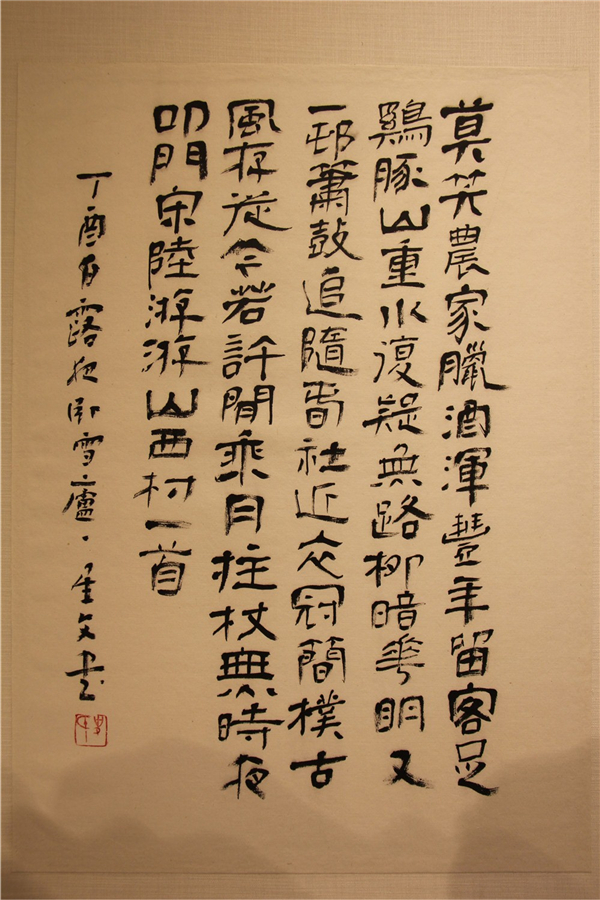 莫笑農家臘酒渾豐年留客足
鷄豚山重水復疑無路柳暗華明又
一邨簫鼓追隨春社近衣冠簡樸古
風存從今若許閒乘月拄杖無時夜
叩門宋陸游游山西村一首
丁酉白露夜卧雪廬文书